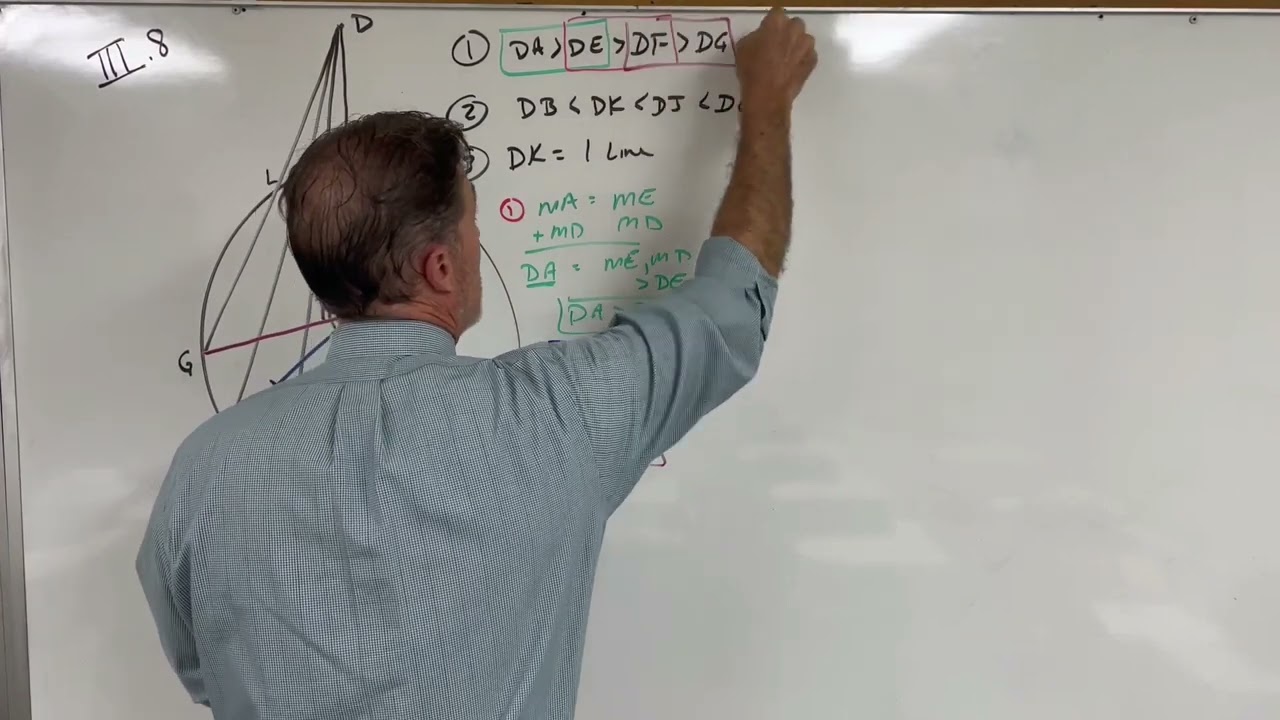 III.8
D
① DA > DE > DF > DG
② DB < DK < DJ < D
DK = 1 Line
L
① MA = ME
+MD MD
DA = ME, MD
> DE
DA
G